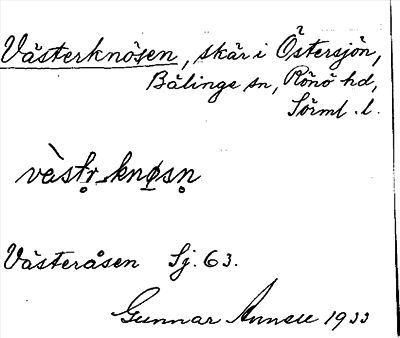 Västerknösen, skär i Östersjön,
Bälinge sn, Rönö hd,
Sörml. l.
vàstr̥_knøsn̥
Västeråsen Sj. 63.
Gunnar 1933